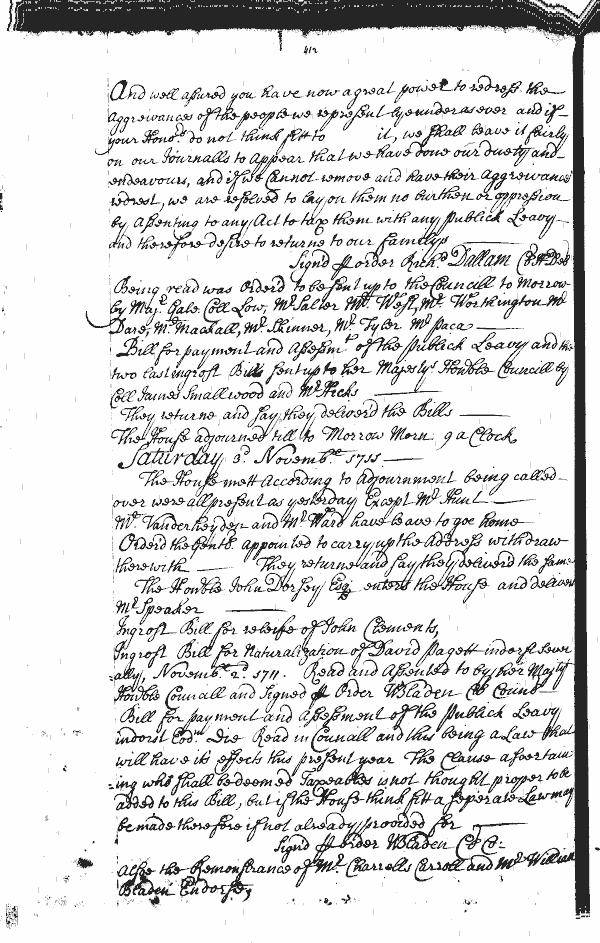 412
And well assured you have now a great power to redress the
aggreivances of the people we represent by e under as ever and if
your Honrs. do not think fitt to it, we shall leave it fairly
on our Journalls to Appear that we have done our duety and
endeavours, and if we Cannot remove and have their Aggreivances
redrest, we are resolved to lay on them no burthen or oppression
by Assenting to any Act to tax them with any Publick Leavy
and therefore desire to returne to our familys
Signd p order Richd Dallam Cl H Del
Being read was Orderd to be sent up to the Councill to Morrow
by Majr. Gale Coll Low, Mr Salter Mr West, Mr. Worthington Mr
Dare, Mr Mackall, Mr Skinner, Mr Tyler Mr Paca
Bill for payment and Assessmt of the Publick Leavy and the
two last ingrost Bills sent up to her Majestys Honble Councill by
Coll James Smallwood and Mr Hicks
They returne and say they deliverd the Bills
The House adjourned till to Morrow Morn. 9 a Clock
Saturday 3d. Novembr 1711
The House mett According to adjournment being called
over were all present as yesterday Except Mr Hunt
Mr. Vanderheyden and Mr Ward have leave to goe home
Orderd the Gentl. appointed to carry up the Address withdraw
therewith They returne and say they deliverd the same
The Honble John Dorsey Esq enters the House and delivers
Mr Speaker
Ingrost Bill for releife of John Clements,
Ingrost Bill for Naturalization of David Pagett indorst sever
=ally, Novembr. 2d. 1711. Read and Assented to by her Majtys
Honble Councall and Signed p Order WBladen Cl Councl
Bill for payment and Assessment of the Publick Leavy
indorst Eod. Die Read in Councall and this being a Law that
will have its effects this present year The Clause ascertain
=ing who shall be deemed Taxeables is not thought proper to be
added to this Bill, but if the House think fitt a seperate Law may
be made therefore if not already provided for
Signd p order WBladen Cl Co:
also the Remonstrance of Mr. Charrells Carroll and Mr William
Bladen Endorse,